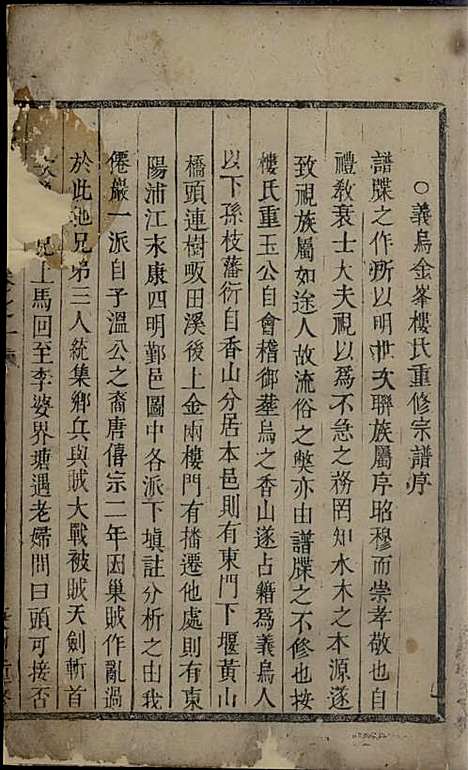 ○義烏金峯樓氏重修宗譜序
譜牒之作所以明世次聯族屬序昭穆而崇孝敬也自
禮教衰士大夫視以爲不急之務罔知水木之本源遂
致視族屬如途人故流俗之獘亦由譜牒之不修也按
樓氏重玉公自會稽御葬烏之香山遂占籍爲義烏人
以下孫枝藩衍自香山分居本邑則有東門下堰黃山
橋頭連樹畈田溪後上金兩樓門有播遷他處則有東
陽浦江永康四明鄞邑圖中各派下填註分析之由我
僊巖一派自予溫公之裔唐僖宗二年因巢賊作亂過
於此地兄弟三人統集鄉兵與賊大戰被賊天劍斬首
兄上馬回至李婆界塘遇老婦問曰頭可接否